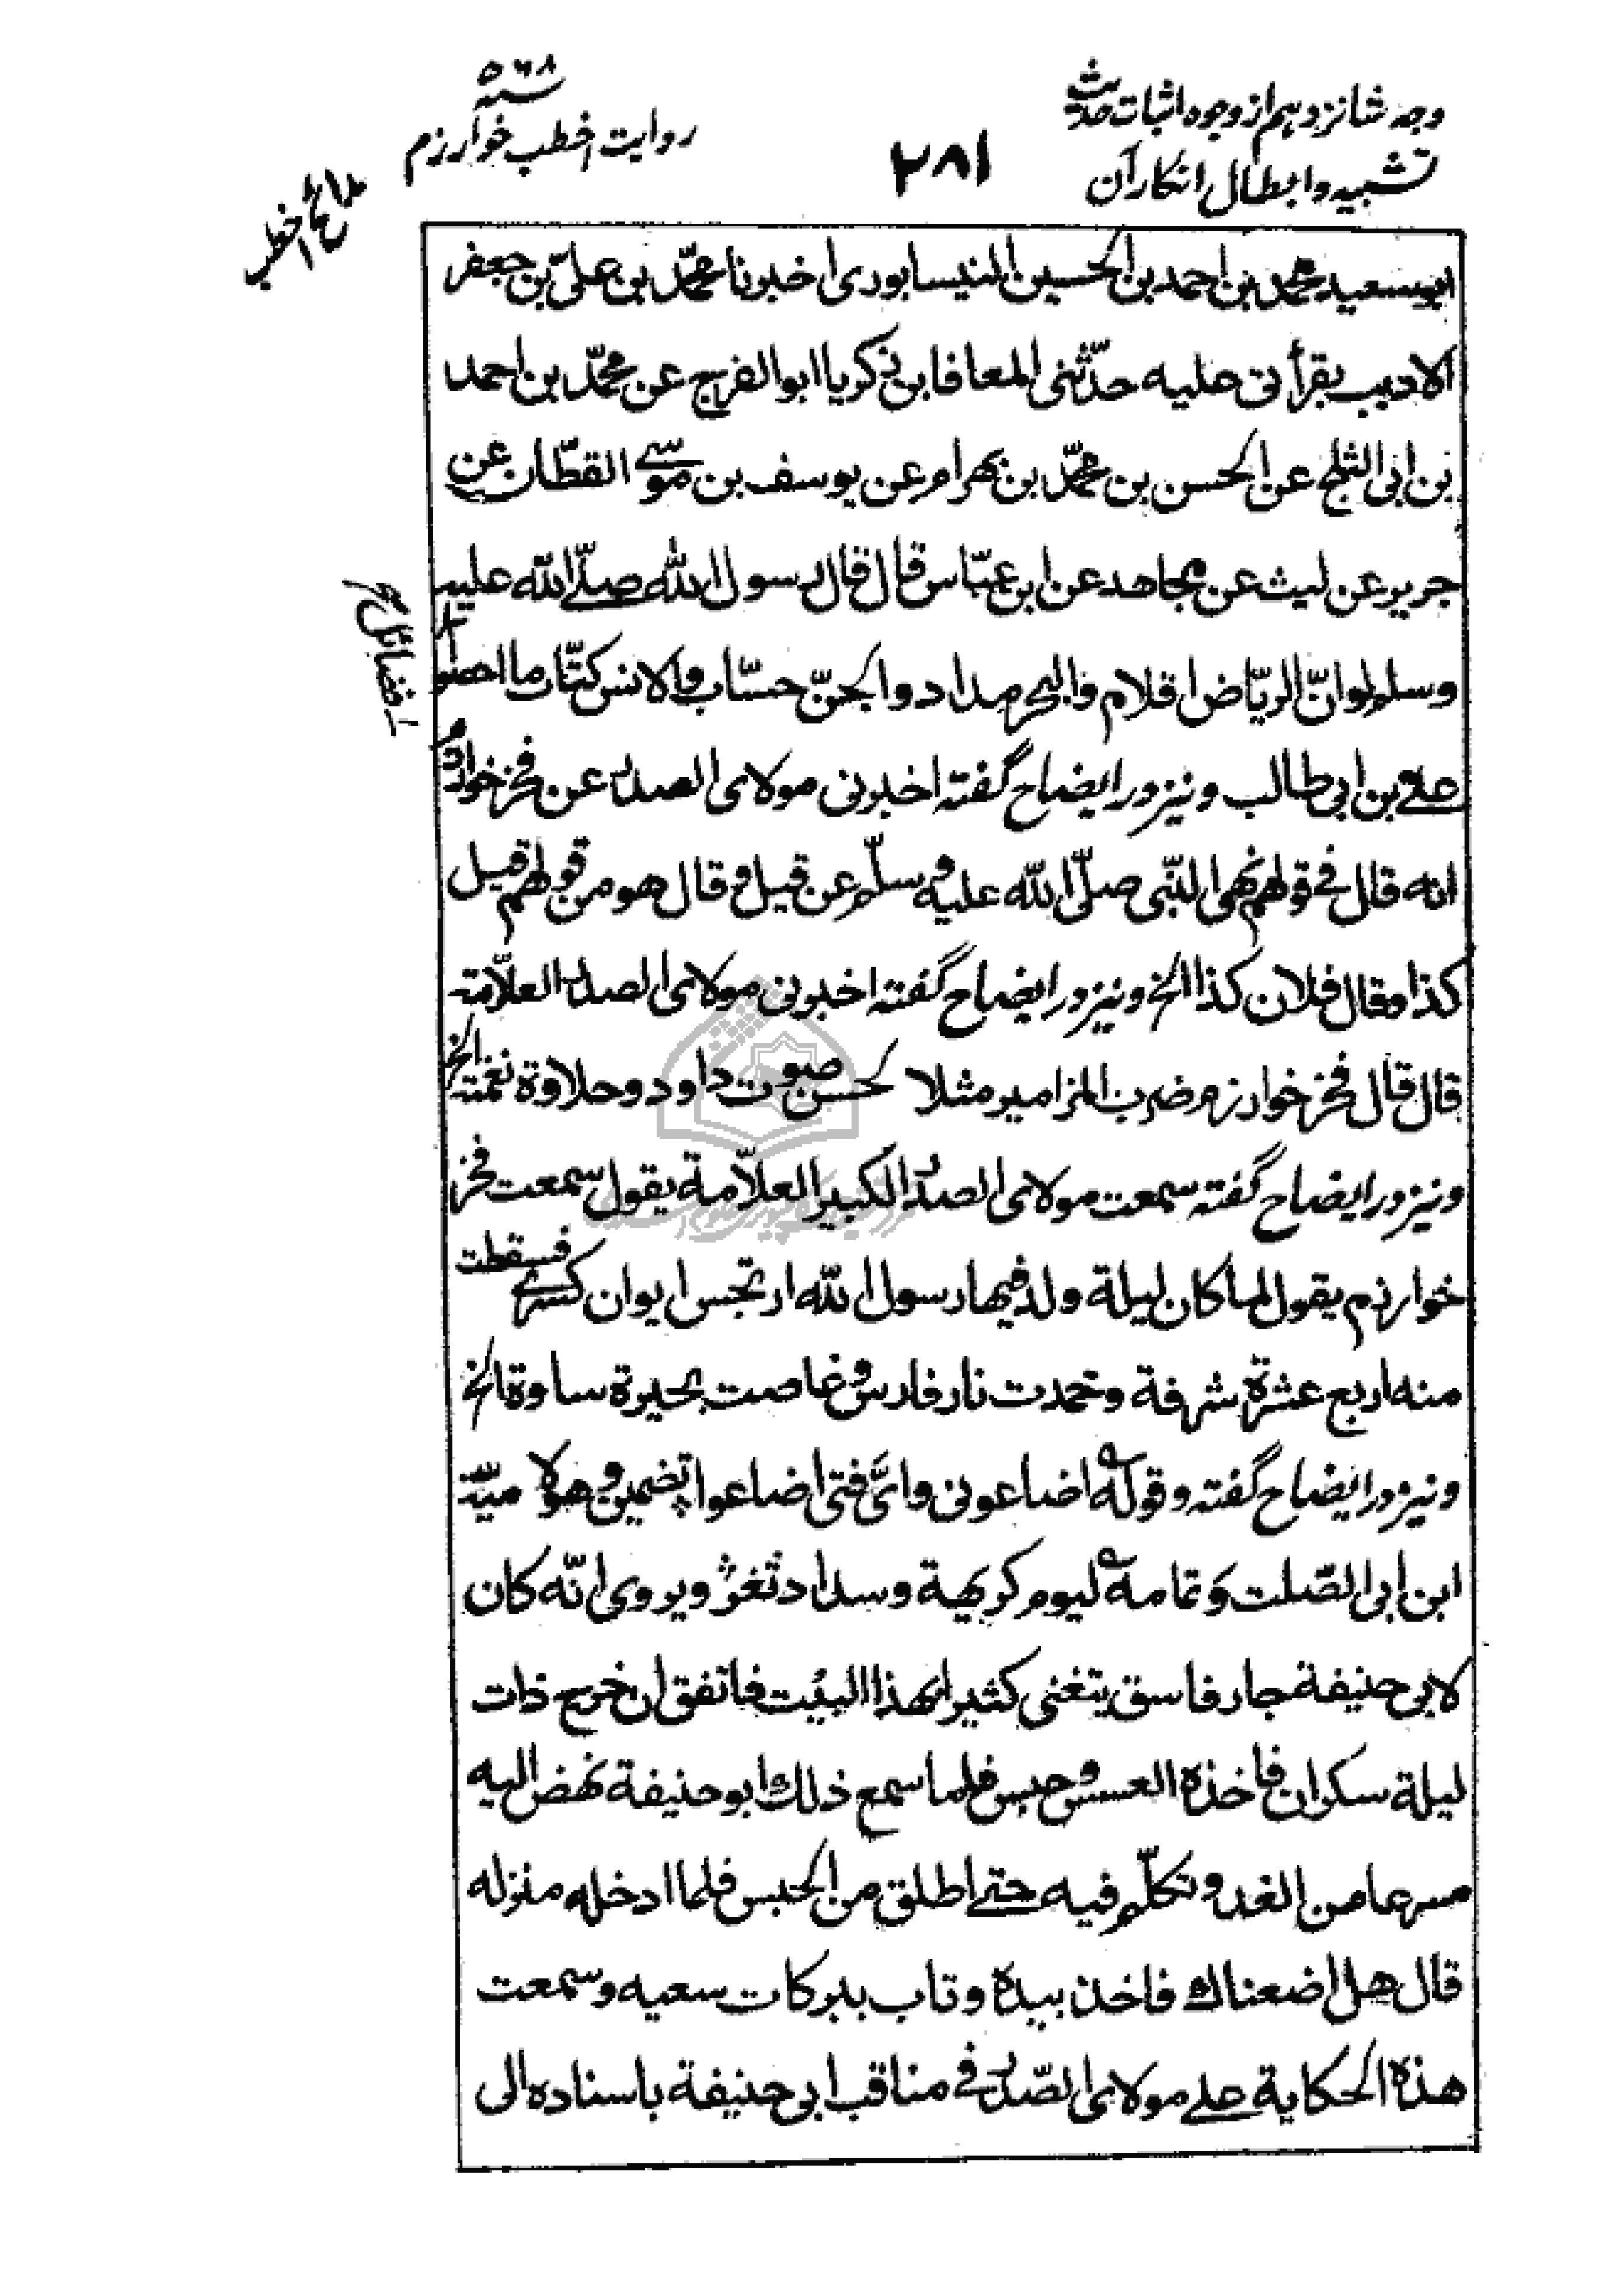 وجه شانزدهم از وجوه اثبات حدیث
تشبیه و ابطال انکار آن
۲۸۱
۵۶۸
سنه
روایت اخطب خوارزم
مدائح اخطب
ابو سعید محمد بن احمد بن الحسین النیسابوری اخبرنا محمّد بن علیّ بن جعفر
الادیب بقرأتی علیه حدّثنی المعافا بن زکریا ابو الفرج عن محمّد بن احمد
بن ابی الثلج عن الحسن بن محمّد بن بهرام عن یوسف بن موسی القطّان عن
جریر عن لیث عن مجاهد عن ابن عبّاس قال قال رسول الله صلّی الله علیه
وسلم لو انّ الریاض اقلام والبحر مداد والجنّ حسّاب والانس کتّاب ما احصو
فضائل
علی بن ابی طالب و نیز در ایضاح گفته اخبرنی مولای الصدر عن فخر خوارزم
انه قال فی قولهم نهی النّبی صلّی الله علیه وسلّم عن قیل و قال هو من قولهم قیل
کذا و قال فلان کذا الخ و نیز در ایضاح گفته اخبرنی مولای الصدر العلّامة
قال قال فخر خوارزم ضرب المزامیر مثلا لحسن صوت داود و حلاوة نغمته الخ
و نیز در ایضاح گفته سمعت مولای الصدر الکبیر العلّامة یقول سمعت فخر
خوارزم یقول لما کان لیلة ولد فیها رسول الله ارتجس ایوان کسری فسقطت
منه اربع عشرة شرفة و خمدت نار فارس و غاصت بحیرة ساوة الخ
و نیز در ایضاح گفته و قوله اضاعونی و ایّ فتی اضاعوا تضمین و هو لامیّة
ابن ابی الصّلت و تمامه لیوم کریهة و سداد ثغر و یروی انّه کان
لابی حنیفة جار فاسق یتغنی کثیرا بهذا البیت فاتفق ان خرج ذات
لیلة سکران فاخذه العسس و حبس فلما سمع ذلك ابو حنیفة نهض الیه
مسرعا من الغد و تکلّم فیه حتی اطلق من الحبس فلما ادخله منزله
قال هل اضعناك فاخذ بیده و تاب ببرکات سعیه و سمعت
هذه الحکایة علی مولای الصّدر فی مناقب ابی حنیفة باسناده الی